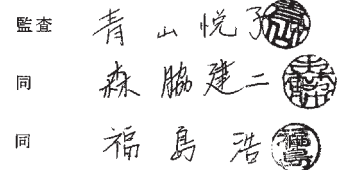 監査 青山悦子
同 森脇建二
同 福島浩